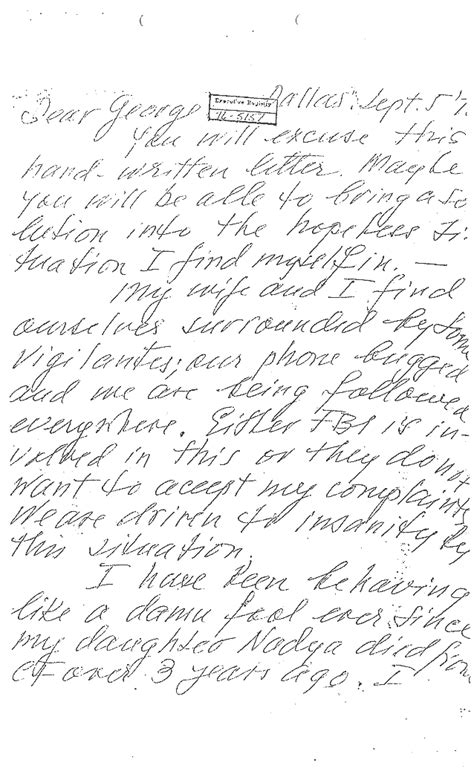 Dallas. Sept. 5
Dear George
Executive Registry
76-5157
You will excuse this
hand-written letter. Maybe
you will be able to bring a so
lution into the hopeless si-
tuation I find myself in. —
My wife and I find
ourselves surrounded by some
vigilantes; our phone bugged
and we are being followed
everywhere. Either FBI is in-
volved in this or they do not
want to accept my complaints
We are driven to insanity by
this situation.
I have been behaving
like a damn fool ever since
my daughter Nadya died from
over 3 years ago. I